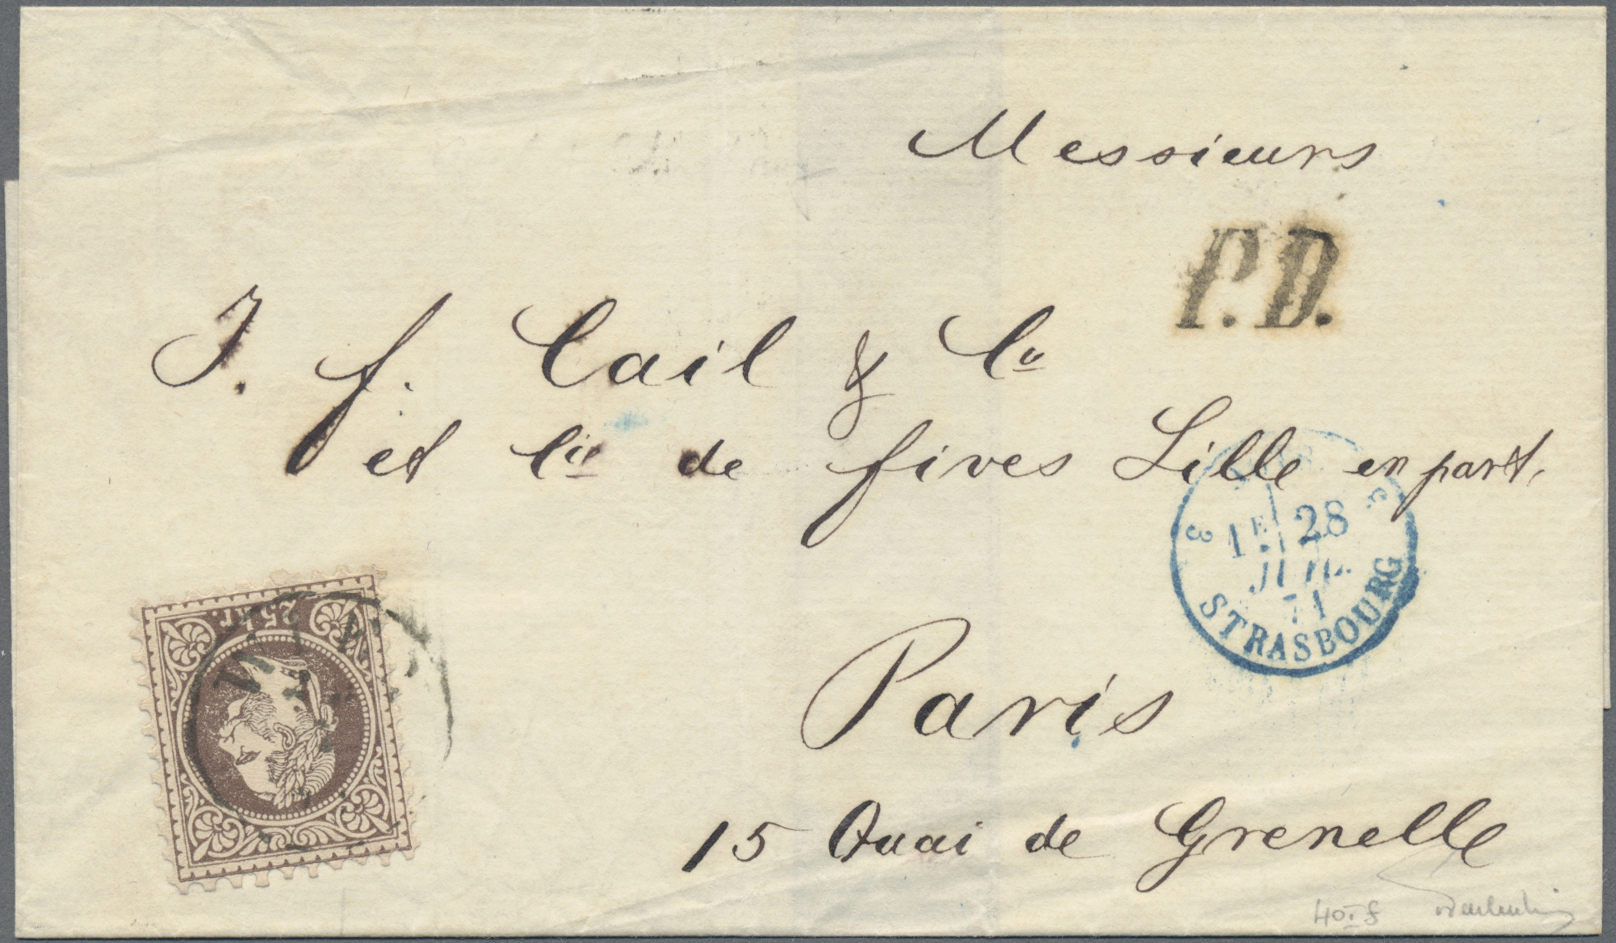 Messieurs
P.D.
J. f. Cail & Co
et Cie de fives Lille en part.
3
1E 28
JUIL.
71
STRASBOURG
25 kr.
Paris
15 Quai de Grenelle